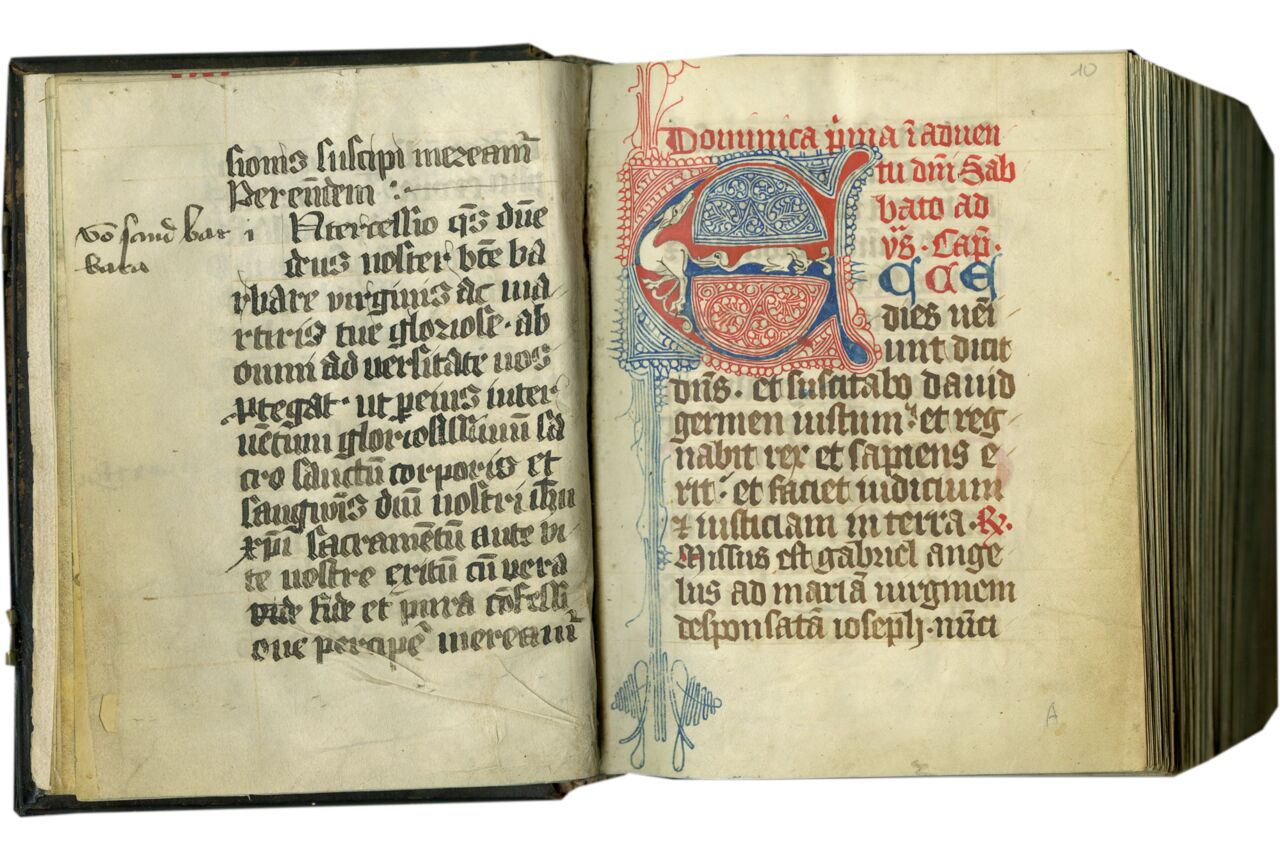 sionis suscipi meream̃
Perem̃dem :
võ sand bar
bara
i Ntercessio qs̃ dñe
deus noster bt̃e ba
rbare virginis ac ma
rtiris tue gloriose · ab
omni ad uersitate nos
ꝓtegat · ut ꝑ eius inter
uẽtum gloriosissimum sa
cro sanctũ corporis et
sanguĩs dñi nostri ihũ
xpĩ sacramẽtũ ante vi
te nostre exitũ cũ vera
fide et pura cõfessi
one percipẽ meream̃
10
Dominica p̃ma ĩ aduen
tu dñi Sab
bato ad
vs̃ · Cap̃ ·
E CCE
dies ueĩ
unt dicit
dñs · et suscitabo dauid
germen iustum · et reg
nabit rex et sapiens e
rit · et faciet iudicium
⁊ iusticiam in terra · ℞ ·
Missus est gabriel ange
lus ad mariã uirginem
desponsatã ioseph · nũci
A